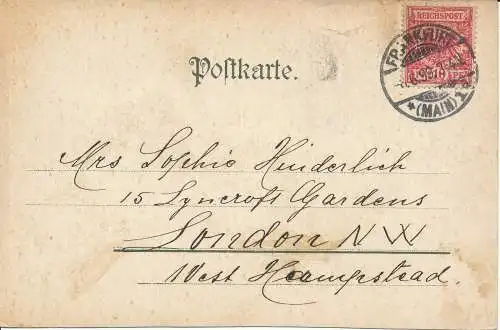 REICHSPOST
FRANKFURT
*(MAIN) 1
Postkarte.
Mrs Sophie Hinderlich
15 Lyncroft Gardens
London NW
West Hampstead.